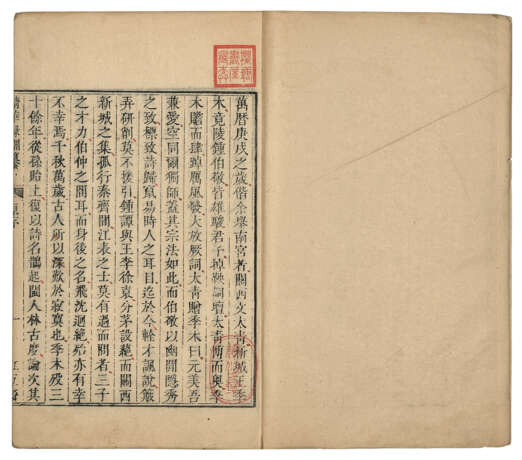 萬曆庚戌之歲偕余舉南宮者關西文太青新城王季
木竟陵鍾伯敬皆雄駿君子掉鞅詞壇太青博而奧季
木贍而肆踔厲風發大放厥詞太青贈季木曰元美吾
兼愛空同爾獨師蓋其宗法如此而伯敬以幽閒隱秀
之致標致詩歸竄易時人之耳目迄於今輇才諷說簸
弄研削莫不援引鍾譚與王李徐袁分茅設蕝而關西
新城之集孤行秦齊間江表之士莫有過而問者三子
之才力伯仲之間耳而身後之名飛沈迥絕殆亦有幸
不幸焉千秋萬歲古人所以深歎於寂寞也季木歿三
十餘年從孫貽上復以詩名鵲起閩人林古度論次其